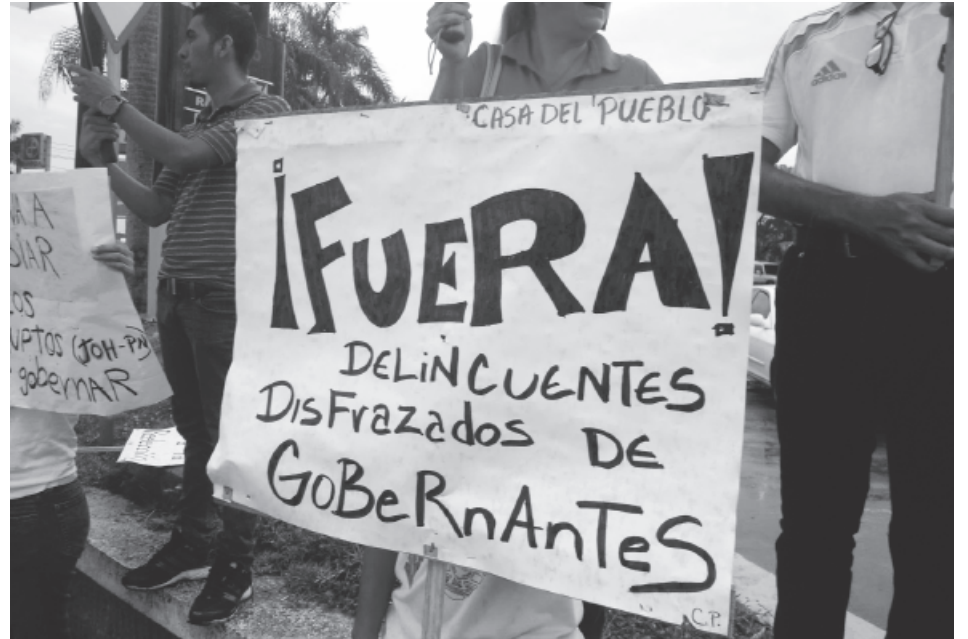 CASA DEL PUEBLO
¡FUERA!
DELiNCUENTES
DisFrazados DE
GoBeRnAnTeS
C.P.
A
OS
UPTOS (JOH-PN)
gobernaR
adidas